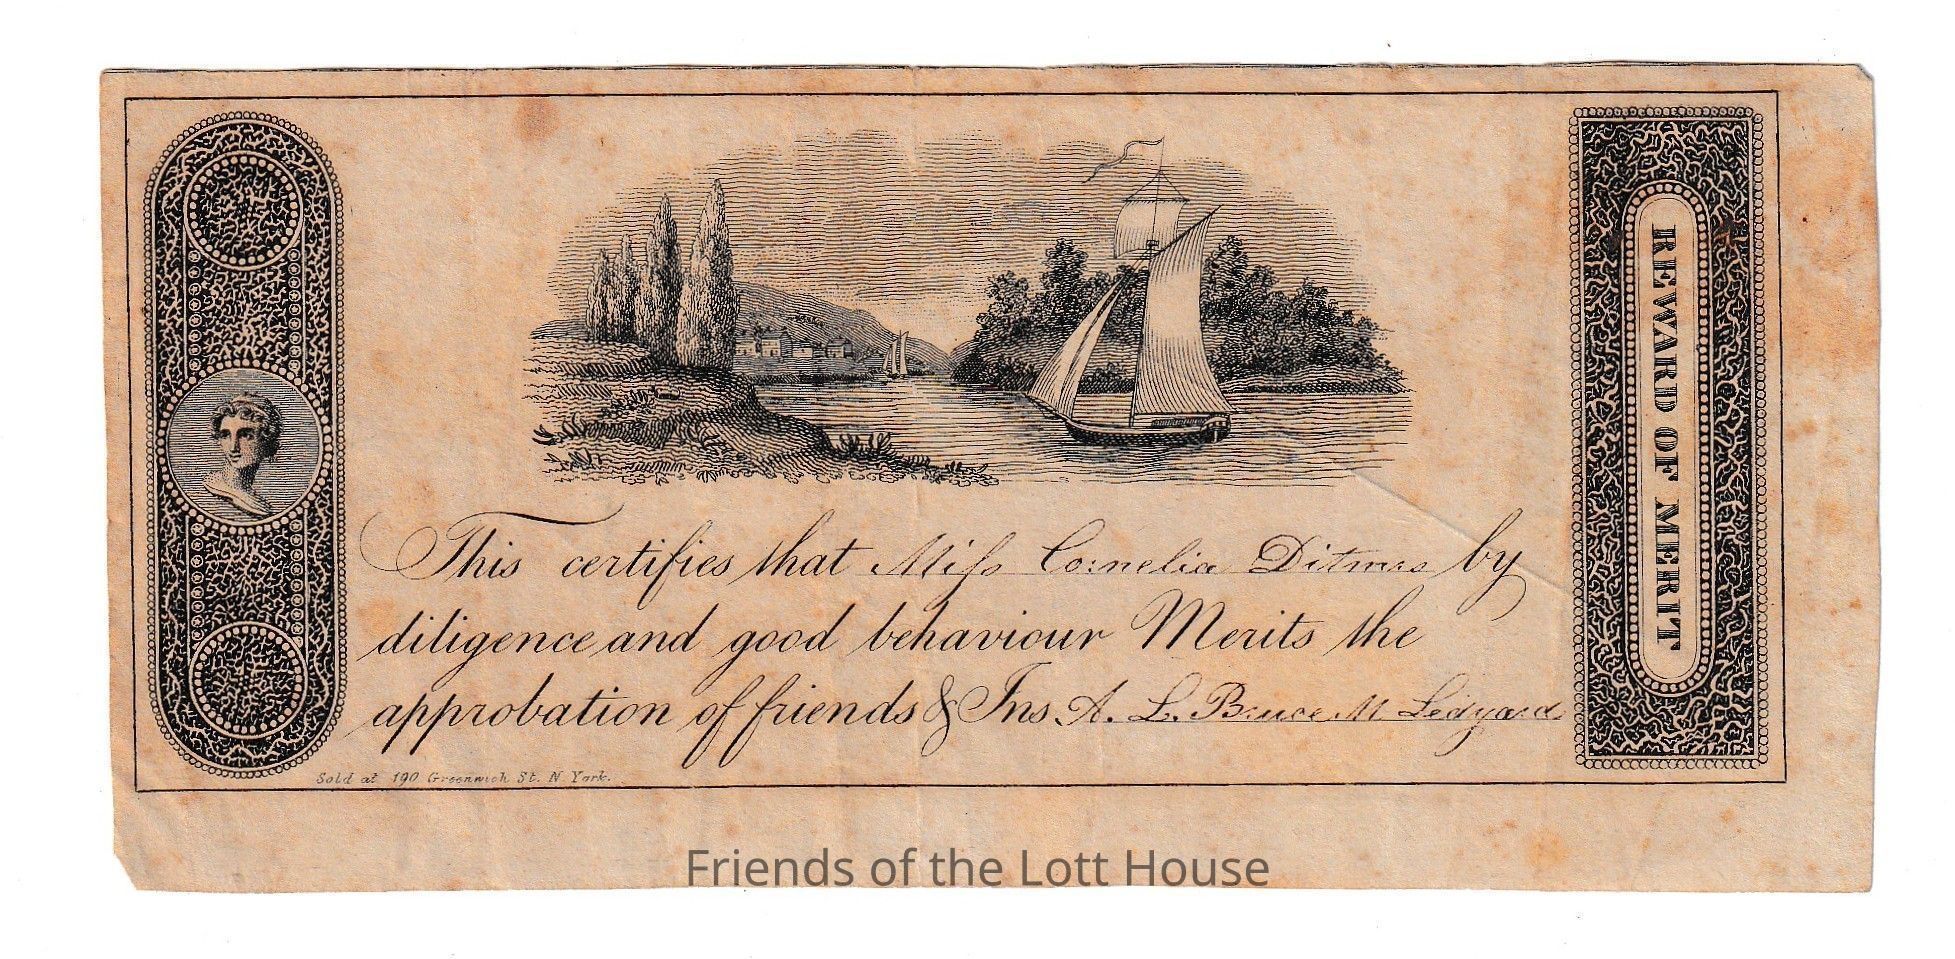 REWARD OF MERIT
This certifies that Miſs Cornelia Ditmas by
diligence and good behaviour Merits the
approbation of friends & Ins. A. L. Bruce M Ledyard
Sold at 190 Greenwich St. N. York.
Friends of the Lott House